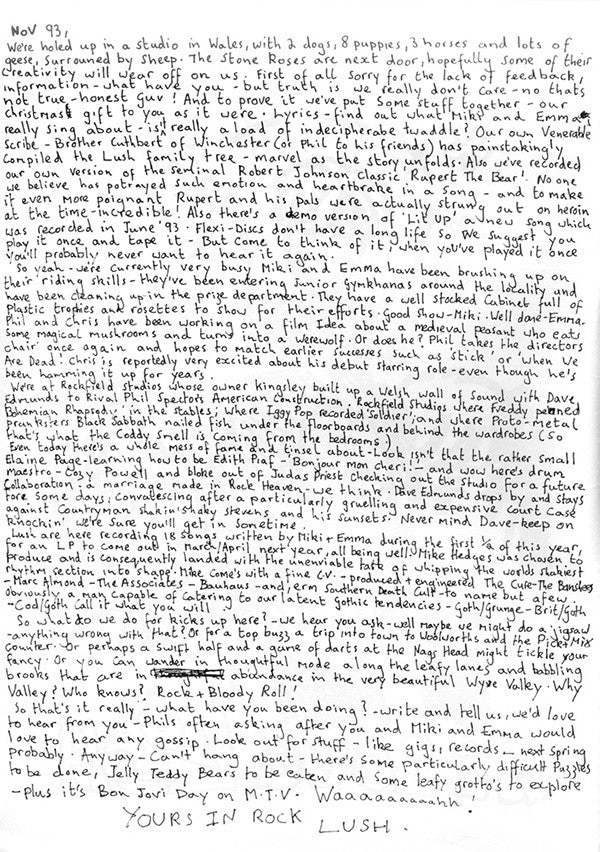 NOV 93,
We're holed up in a studio in Wales, with 2 dogs, 8 puppies, 3 horses and lots of
geese, surrouned by sheep. The Stone Roses are next door, hopefully some of their
creativity will wear off on us. First of all sorry for the lack of feedback,
information - what have you - but truth is we really don't care - no thats
not true - honest Guv! And to prove it we've put some stuff together - our
christmas gift to you as it were. Lyrics - find out what Miki and Emma
really sing about - is it really a load of indecipherabe twaddle? Our own Venerable
Scribe - Brother Cuthbert of Winchester (or Phil to his friends) has painstakingly
compiled the Lush family tree - marvel as the story unfolds. Also we've recorded
our own version of the seminal Robert Johnson classic 'Rupert The Bear'. No one
we believe has potrayed such emotion and heartbrake in a song - and to make
it even more poignant Rupert and his pals were actually strung out on heroin
at the time - incredible! Also there's a demo version of 'Lit Up' a new song which
was recorded in June '93. Flexi-Discs don't have a long life so we suggest you
play it once and tape it - But come to think of it, when you've played it once
you'll probably never want to hear it again.
So yeah - we're currently very busy Miki and Emma have been brushing up on
their riding skills - they've been entering Junior Gymkhanas around the locality and
have been cleaning up in the prize department. They have a well stocked Cabinet full of
plastic trophies and rosettes to show for their efforts. Good show - Miki. Well done - Emma.
Phil and Chris have been working on a film Idea about a medieval peasant who eats
some magical mushrooms and turns into a werewolf. Or does he? Phil takes the directors
chair once again and hopes to match earlier successes such as 'stick' or 'When We
Are Dead'. Chris is reportedly very excited about his debut starring role - even though he's
been hamming it up for years.
We're at Rockfield studios whose owner Kingsley built up a Welsh wall of sound with Dave
Edmunds to Rival Phil Spectors American construction. Rockfield Studios where Freddy penned
'Bohemian Rhapsody' in the stables; where Iggy Pop recorded 'Soldier'; and where Proto-metal
prunksters Black Sabbath nailed fish under the floorboards and behind the wardrobes (so
that's what the Coddy smell is coming from the bedrooms)
Even today there's a whole mess of fame and tinsel about - Look isn't that the rather small
Elaine Page - learning how to be Edith Piaf - 'Bonjour mon cheri!' - and wow here's drum
maestro - Cozy Powell and bloke out of Judas Priest checking out the studio for a future
collaboration - a marriage made in Rock Heaven - we think. Dave Edmunds drops by and stays
fore some days, convalescing after a particularly gruelling and expensive court case
against Countryman shakin' Shakey Stevens and his sunsets. Never mind Dave - keep on
knockin' we're sure you'll get in sometime.
Lush are here recording 18 songs written by Miki + Emma during the first ¼ of this year,
for an LP to come out in March/April next year, all being well. Mike Hedges was chosen to
produce and is consequently landed with the unenviable task of whipping the worlds shakiest
rhythm section into shape. Mike comes with a fine c.v. - produced + engineered The Cure - The Banshees
- Marc Almond - The Associates - Bauhaus - and, erm Southern Death Cult - to name but a few
obviously a man capable of catering to our latent gothic tendencies - Goth/Grunge - Brit/Goth
- Cod/Goth call it what you will
So what do we do for kicks up here? - we hear you ask - well maybe we might do a jigsaw
- anything wrong with that? Or for a top buzz a trip into town to Woolworths and the Pick + Mix
counter. Or perhaps a swift half and a game of darts at the Nags Head might tickle your
fancy. Or you can wander in thoughtful mode along the leafy lanes and babbling
brooks that are in abundance in the very beautiful Wyve Valley. Why
Valley? Who knows?, Rock + Bloody Roll!
So that's it really - what have you been doing? - write and tell us, we'd love
to hear from you - Phils often asking after you and Miki and Emma would
love to hear any gossip. Look out for stuff - like gigs, records - next Spring
probably. Anyway - Can't hang about - there's some particularly difficult Puzzles
to be done, Jelly Teddy Bears to be eaten and some leafy grotto's to explore
- plus it's Bon Jovi Day on M.T.V. Waaaaaaaaahh!
YOURS IN ROCK
LUSH.